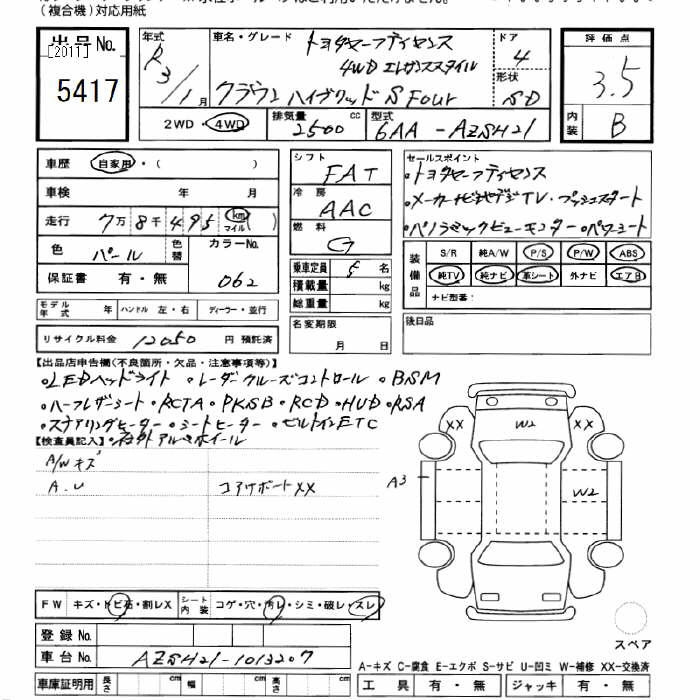 (複合機)対応用紙
出品No.
[2011]
5417
年式
R3/1月
車名・グレード
トヨタセーフティセンス
4WD エレガンススタイル
クラウンハイブリッド S Four
ドア
4
形状
SD
評価点
3.5
内装
B
2WD・4WD
排気量
2500
cc
型式
6AA-AZSH21
車歴 自家用・( )
車検 年 月
走行 7万8千495 km マイル ( )
色 パール
色替
カラーNo.
062
保証書 有・無
シフト
FAT
冷房
AAC
燃料
G
乗車定員 5 名
積載量 kg
総重量 kg
セールスポイント
・トヨタセーフティセンス
・メーカーナビ地デジTV・プッシュスタート
・パノラミックビューモニター・パワーシート
装備品
S/R 純A/W P/S P/W ABS
純TV 純ナビ 革シート 外ナビ エアB
ナビ型番:
モデル年式 年 ハンドル 左・右 ディーラー・並行
名変期限
月 日
後日品
リサイクル料金 12050 円 預託済
【出品店申告欄(不良箇所・欠品・注意事項等)】
・LEDヘッドライト ・レーダークルーズコントロール ・BSM
・ハーフレザーシート・RCTA・PKSB・RCD・HUD・RSA
・ステアリングヒーター・シートヒーター・ビルトインETC
【検査員記入】・社外アルミホイール
A/Wキズ
A.U
コアサポートXX
XX
W2
XX
A3
W2
FW キズ・トビ石・割レX
シート内装 コゲ・穴・汚レ・シミ・破レ・スレ
登録No.
車台No. AZSH21-1013207
車庫証明用 長さ cm 幅 cm 高さ cm
スペア
A-キズ C-腐食 E-エクボ S-サビ U-凹ミ W-補修 XX-交換済
工具 有・無 ジャッキ 有・無